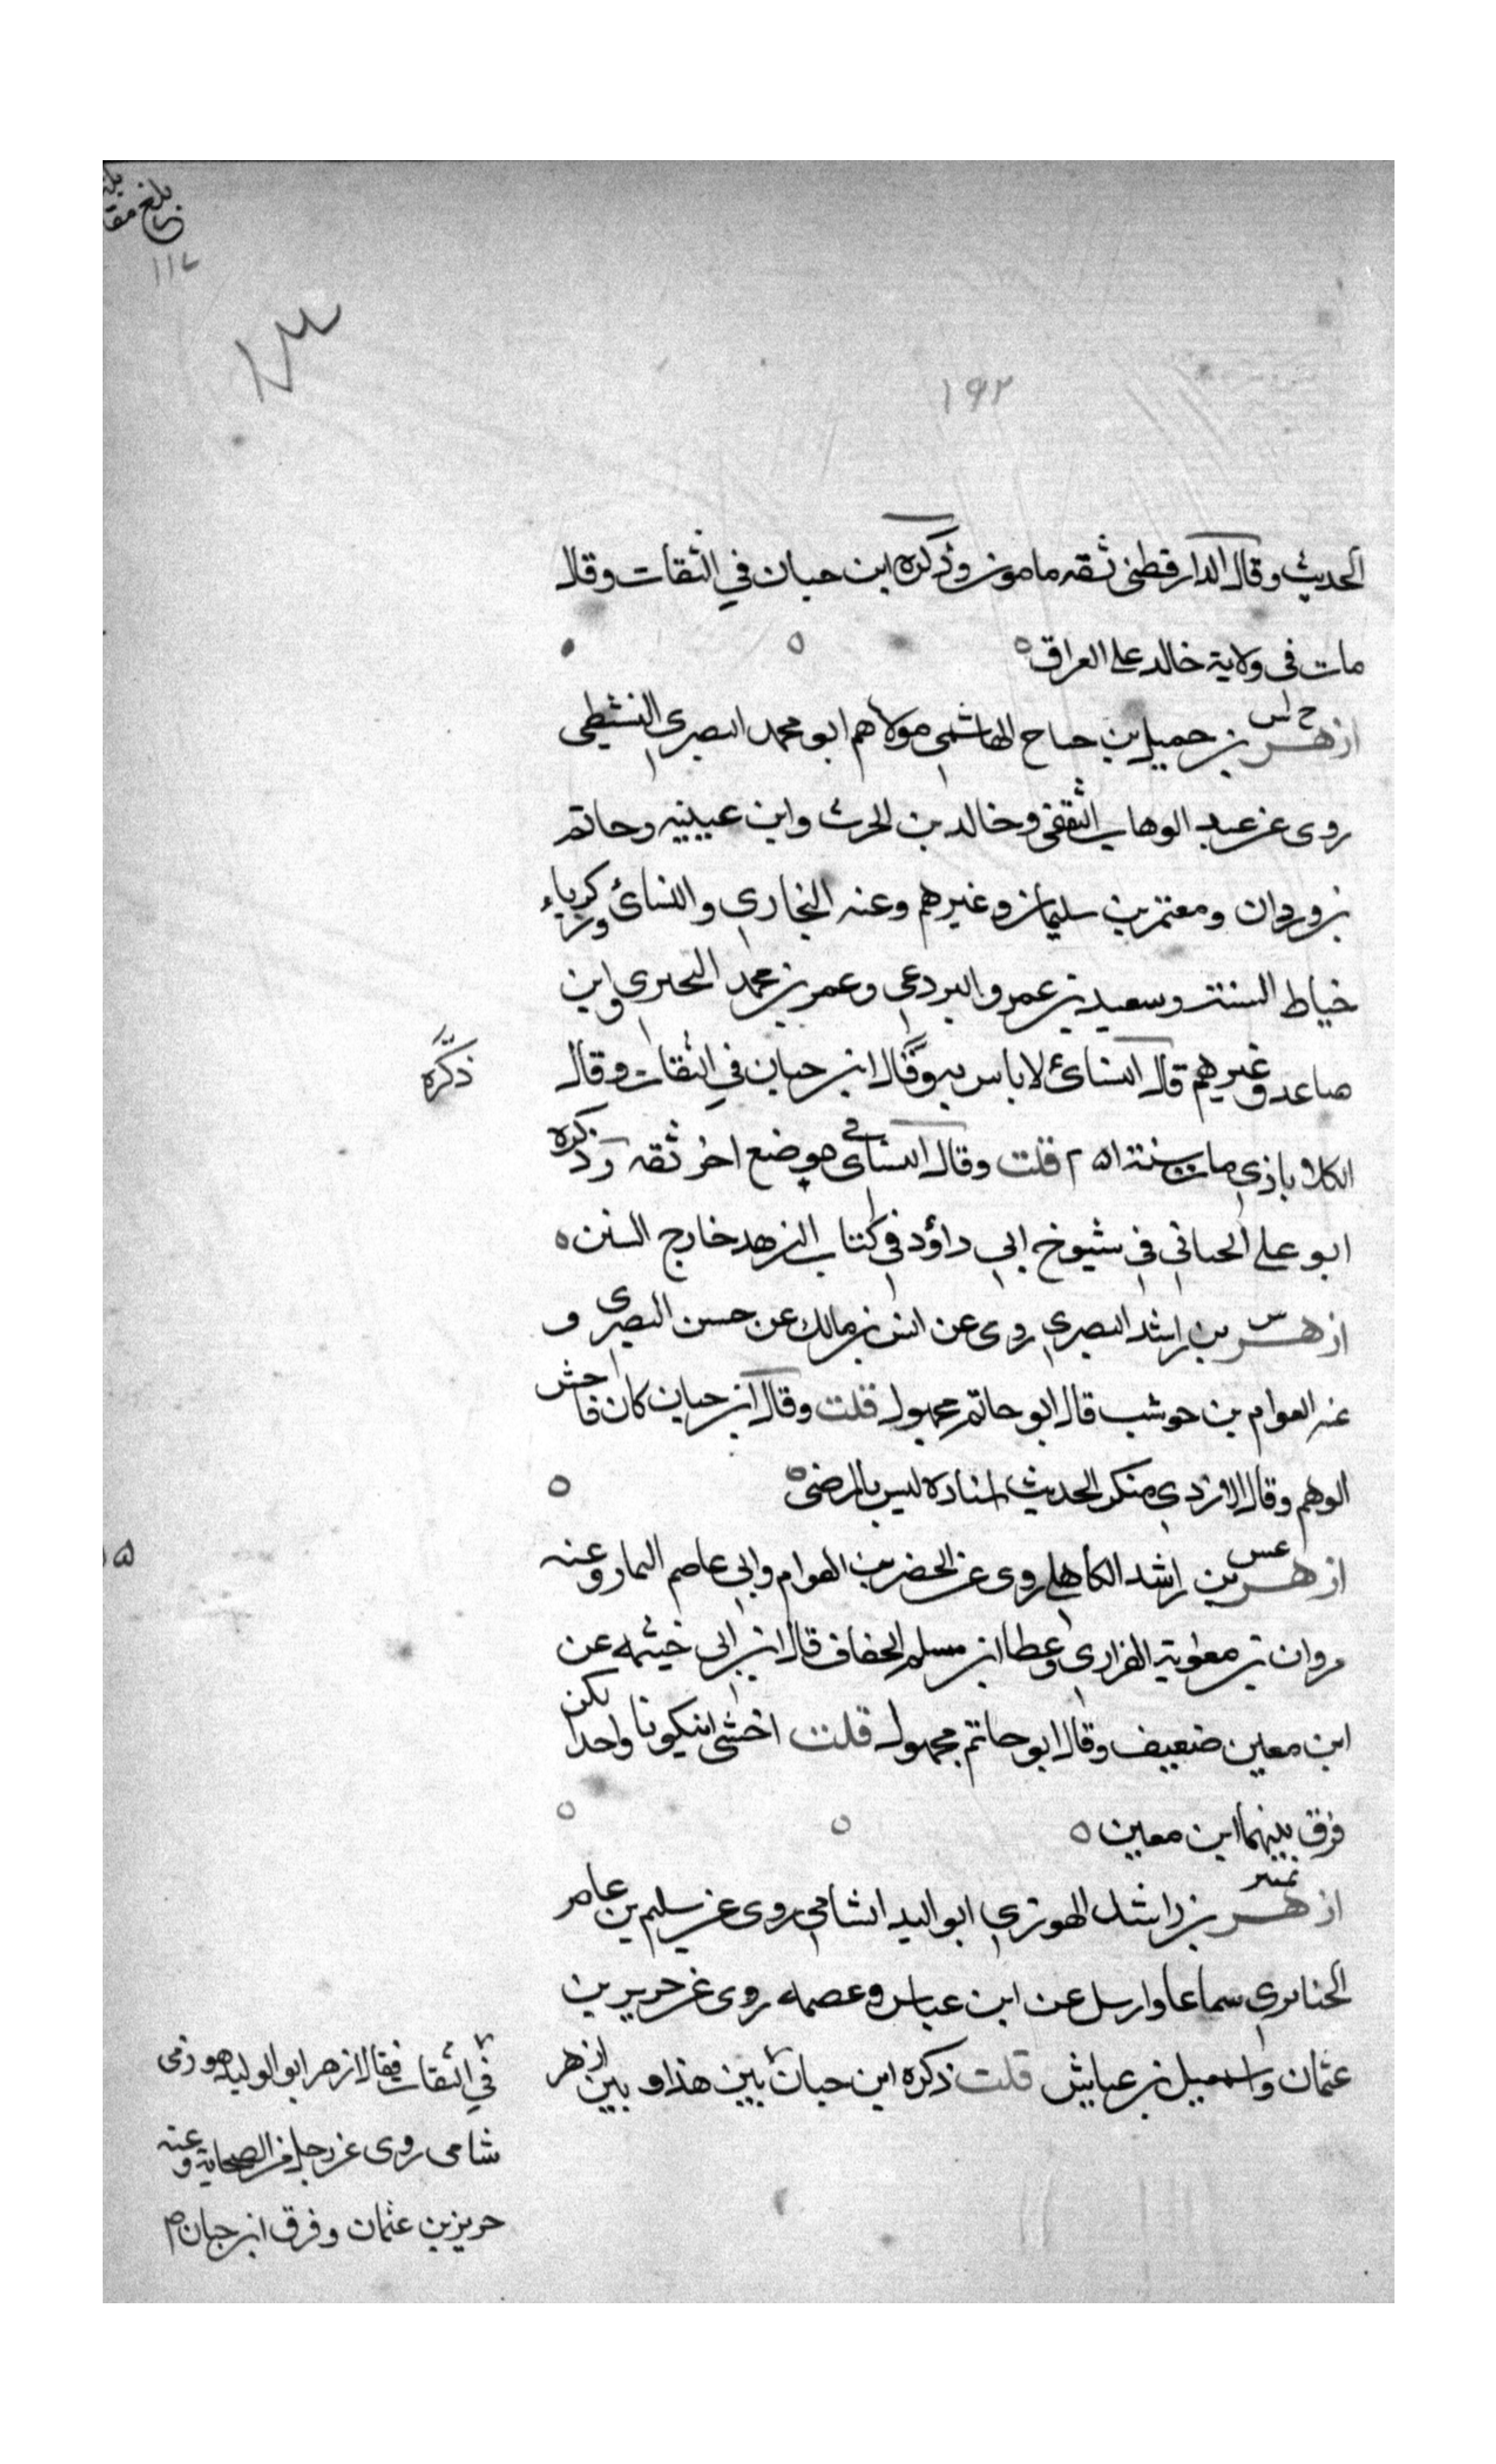 بلغ مقا
١١٧
١٣
١٩٢
الحديث وقال الدارقطني ثقه مامون وذكره ابن حبان في الثقات وقال
مات في ولاية خالد على العراق
ح س
ازهر بن جميل بن جناح الهاشمي مولاهم ابو محمد البصري الشطي
روى عن عبد الوهاب الثقفي وخالد بن الحرث وابن عيينه وحاتم
بن وردان ومعتمر بن سليمان وغيرهم وعنه البخاري والنسائ وزكرياء
خياط السنة وسعيد بن عمرو البردعي وعمر بن محمد البحيرى وابن
صاعد وغيرهم قال النسائ لا باس به وقال ابن حبان في الثقات وقال
ذكره
الكلاباذي مات سنة ٢٥١ قلت وقال النسائي في موضع اخر ثقه وذكره
ابو علي الجياني في شيوخ ابي داؤد في كتاب الزهد خارج السنن ه
س
ازهر بن راشد البصري روى عن انس بن مالك عن حسن البصرى و
عنه العوام بن حوشب قال ابو حاتم مجهول قلت وقال ابن حبان كان فاحش
الوهم وقال الازدي منكر الحديث اسناده ليس بالمرضى ه
عس
ازهر بن راشد الكاهلي روى عن الخضر بن القواس وابي عاصم التمار وعنه
مروان بن معاوية الفزاري وعطا ابن مسلم الخفاف قال ابن ابي خيثمه عن
ابن معين ضعيف وقال ابو حاتم مجهول قلت اخشى ان يكونا واحدا لكن
فرق بينهما ابن معين ه
تمييز
ازهر بن راشد الهوزني ابو الوليد الشامي روى عن سليم بن عامر
الخبائري سماعا وارسل عن ابن عباس وعصمه روى عن حريز بن
عثمان واسمعيل بن عياش قلت ذكره ابن حبان بين هذا وبين ازهر
في الثقات فقال ازهر ابو الوليد هوزني
شامى روى عن رجل من الصحابة وعنه
حريز بن عثمان وفرق ابن حبان م